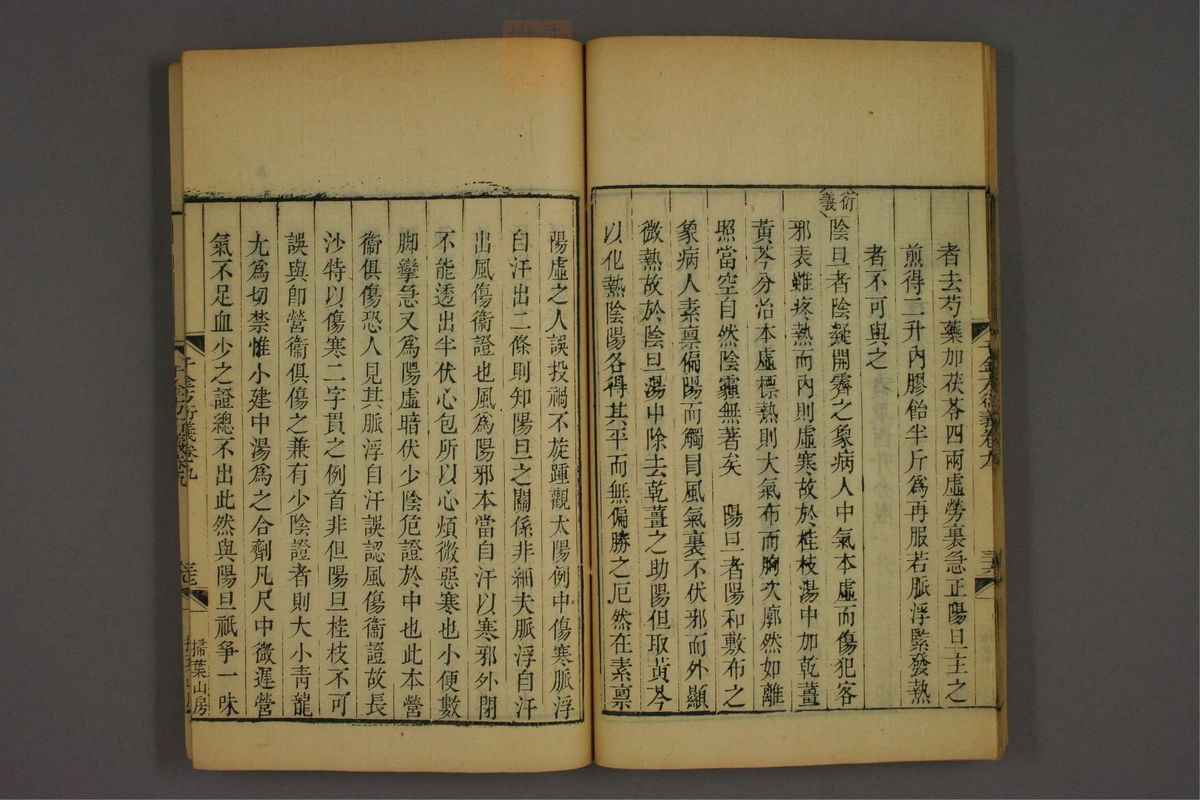 者去芍藥加茯苓四兩虛勞裏急正陽旦主之
煎得二升內膠飴半斤爲再服若脈浮緊發熱
者不可與之
衍義
陰旦者陰凝開霽之象病人中氣本虛而傷犯客
邪表雖疼熱而內則虛寒故於桂枝湯中加乾薑
黃芩分治本虛標熱則大氣布而胸次廓然如離
照當空自然陰霾無著矣 陽旦者陽和敷布之
象病人素稟偏陽而觸冒風氣裏不伏邪而外顯
微熱故於陰旦湯中除去乾薑之助陽但取黃芩
以化熱陰陽各得其平而無偏勝之厄然在素稟
千金方衍義卷九
三六
陽虛之人誤投禍不旋踵觀太陽例中傷寒脈浮
自汗出二條則知陽旦之關係非細夫脈浮自汗
出風傷衞證也風爲陽邪本當自汗以寒邪外閉
不能透出半伏心包所以心煩微惡寒也小便數
脚攣急又爲陽虛暗伏少陰危證於中也此本營
衞俱傷恐人見其脈浮自汗誤認風傷衞證故長
沙特以傷寒二字貫之例首非但陽旦桂枝不可
誤與卽營衞俱傷之兼有少陰證者則大小靑龍
尤爲切禁惟小建中湯爲之合劑凡尺中微遲營
氣不足血少之證總不出此然與陽旦祇爭一味
千金方衍義卷九
三七
掃葉山房